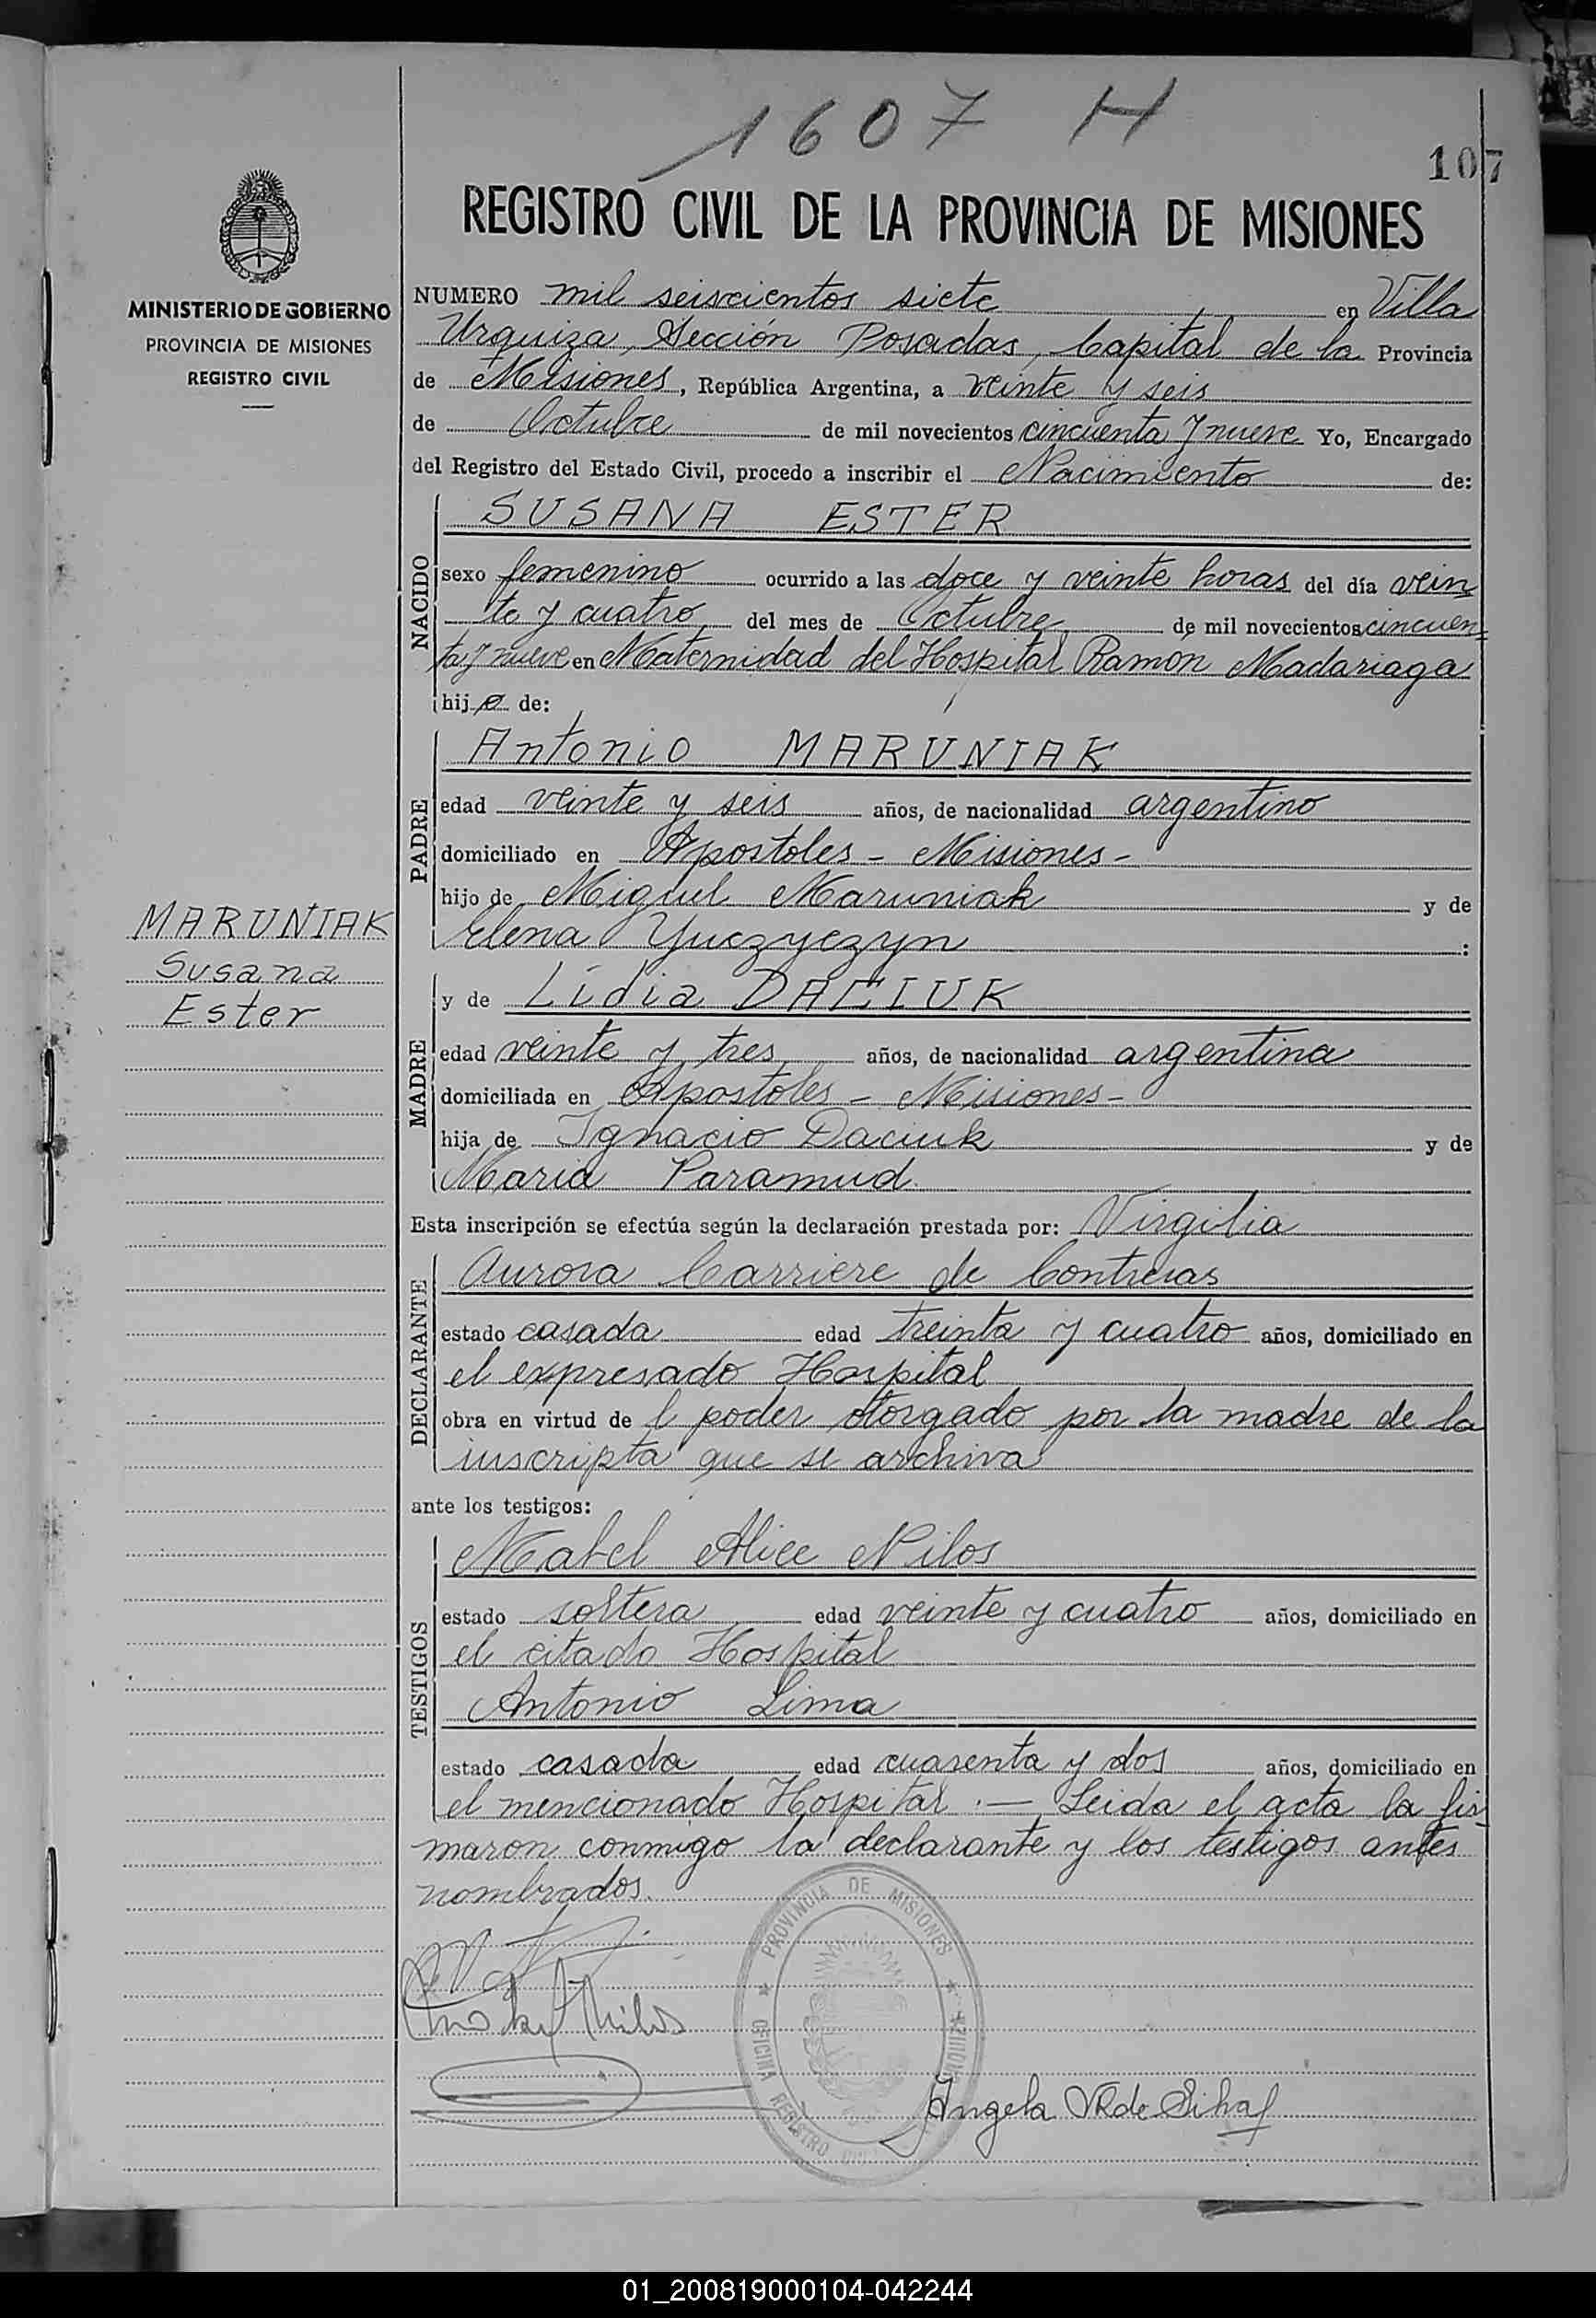 1607 H
107
REGISTRO CIVIL DE LA PROVINCIA DE MISIONES
MINISTERIO DE GOBIERNO
PROVINCIA DE MISIONES
REGISTRO CIVIL
NUMERO mil seiscientos siete en Villa
Urquiza, Sección Posadas, Capital de la Provincia
de Misiones, República Argentina, a veinte y seis
de Octubre de mil novecientos cincuenta y nueve Yo, Encargado
del Registro del Estado Civil, procedo a inscribir el Nacimiento de:
NACIDO
SUSANA ESTER
sexo femenino ocurrido a las doce y veinte horas del día vein
te y cuatro del mes de Octubre de mil novecientos cincuen
ta y nueve en Maternidad del Hospital Ramon Madariaga
hija de:
PADRE
Antonio MARUNIAK
edad veinte y seis años, de nacionalidad argentino
domiciliado en Apostoles - Misiones -
hijo de Miguel Maruniak y de
Elena Yuczyczyn :
MARUNIAK
Susana
Ester
MADRE
y de Lidia DACIUK
edad veinte y tres años, de nacionalidad argentina
domiciliada en Apostoles - Misiones -
hija de Ignacio Daciuk y de
Maria Paramud.
Esta inscripción se efectúa según la declaración prestada por: Virgilia
DECLARANTE
Aurora Carriere de Contreras
estado casada edad treinta y cuatro años, domiciliado en
el expresado Hospital
obra en virtud de l poder otorgado por la madre de la
inscripta que se archiva
ante los testigos:
TESTIGOS
Mabel Alice Nilos
estado soltera edad veinte y cuatro años, domiciliado en
el citado Hospital
Antonio Lima
estado casada edad cuarenta y dos años, domiciliado en
el mencionado Hospital .— Leida el acta la fir
maron conmigo la declarante y los testigos antes
nombrados.
PROVINCIA DE MISIONES
OFICINA REGISTRO CIVIL
Angela V R de Sihaf
01_200819000104-042244